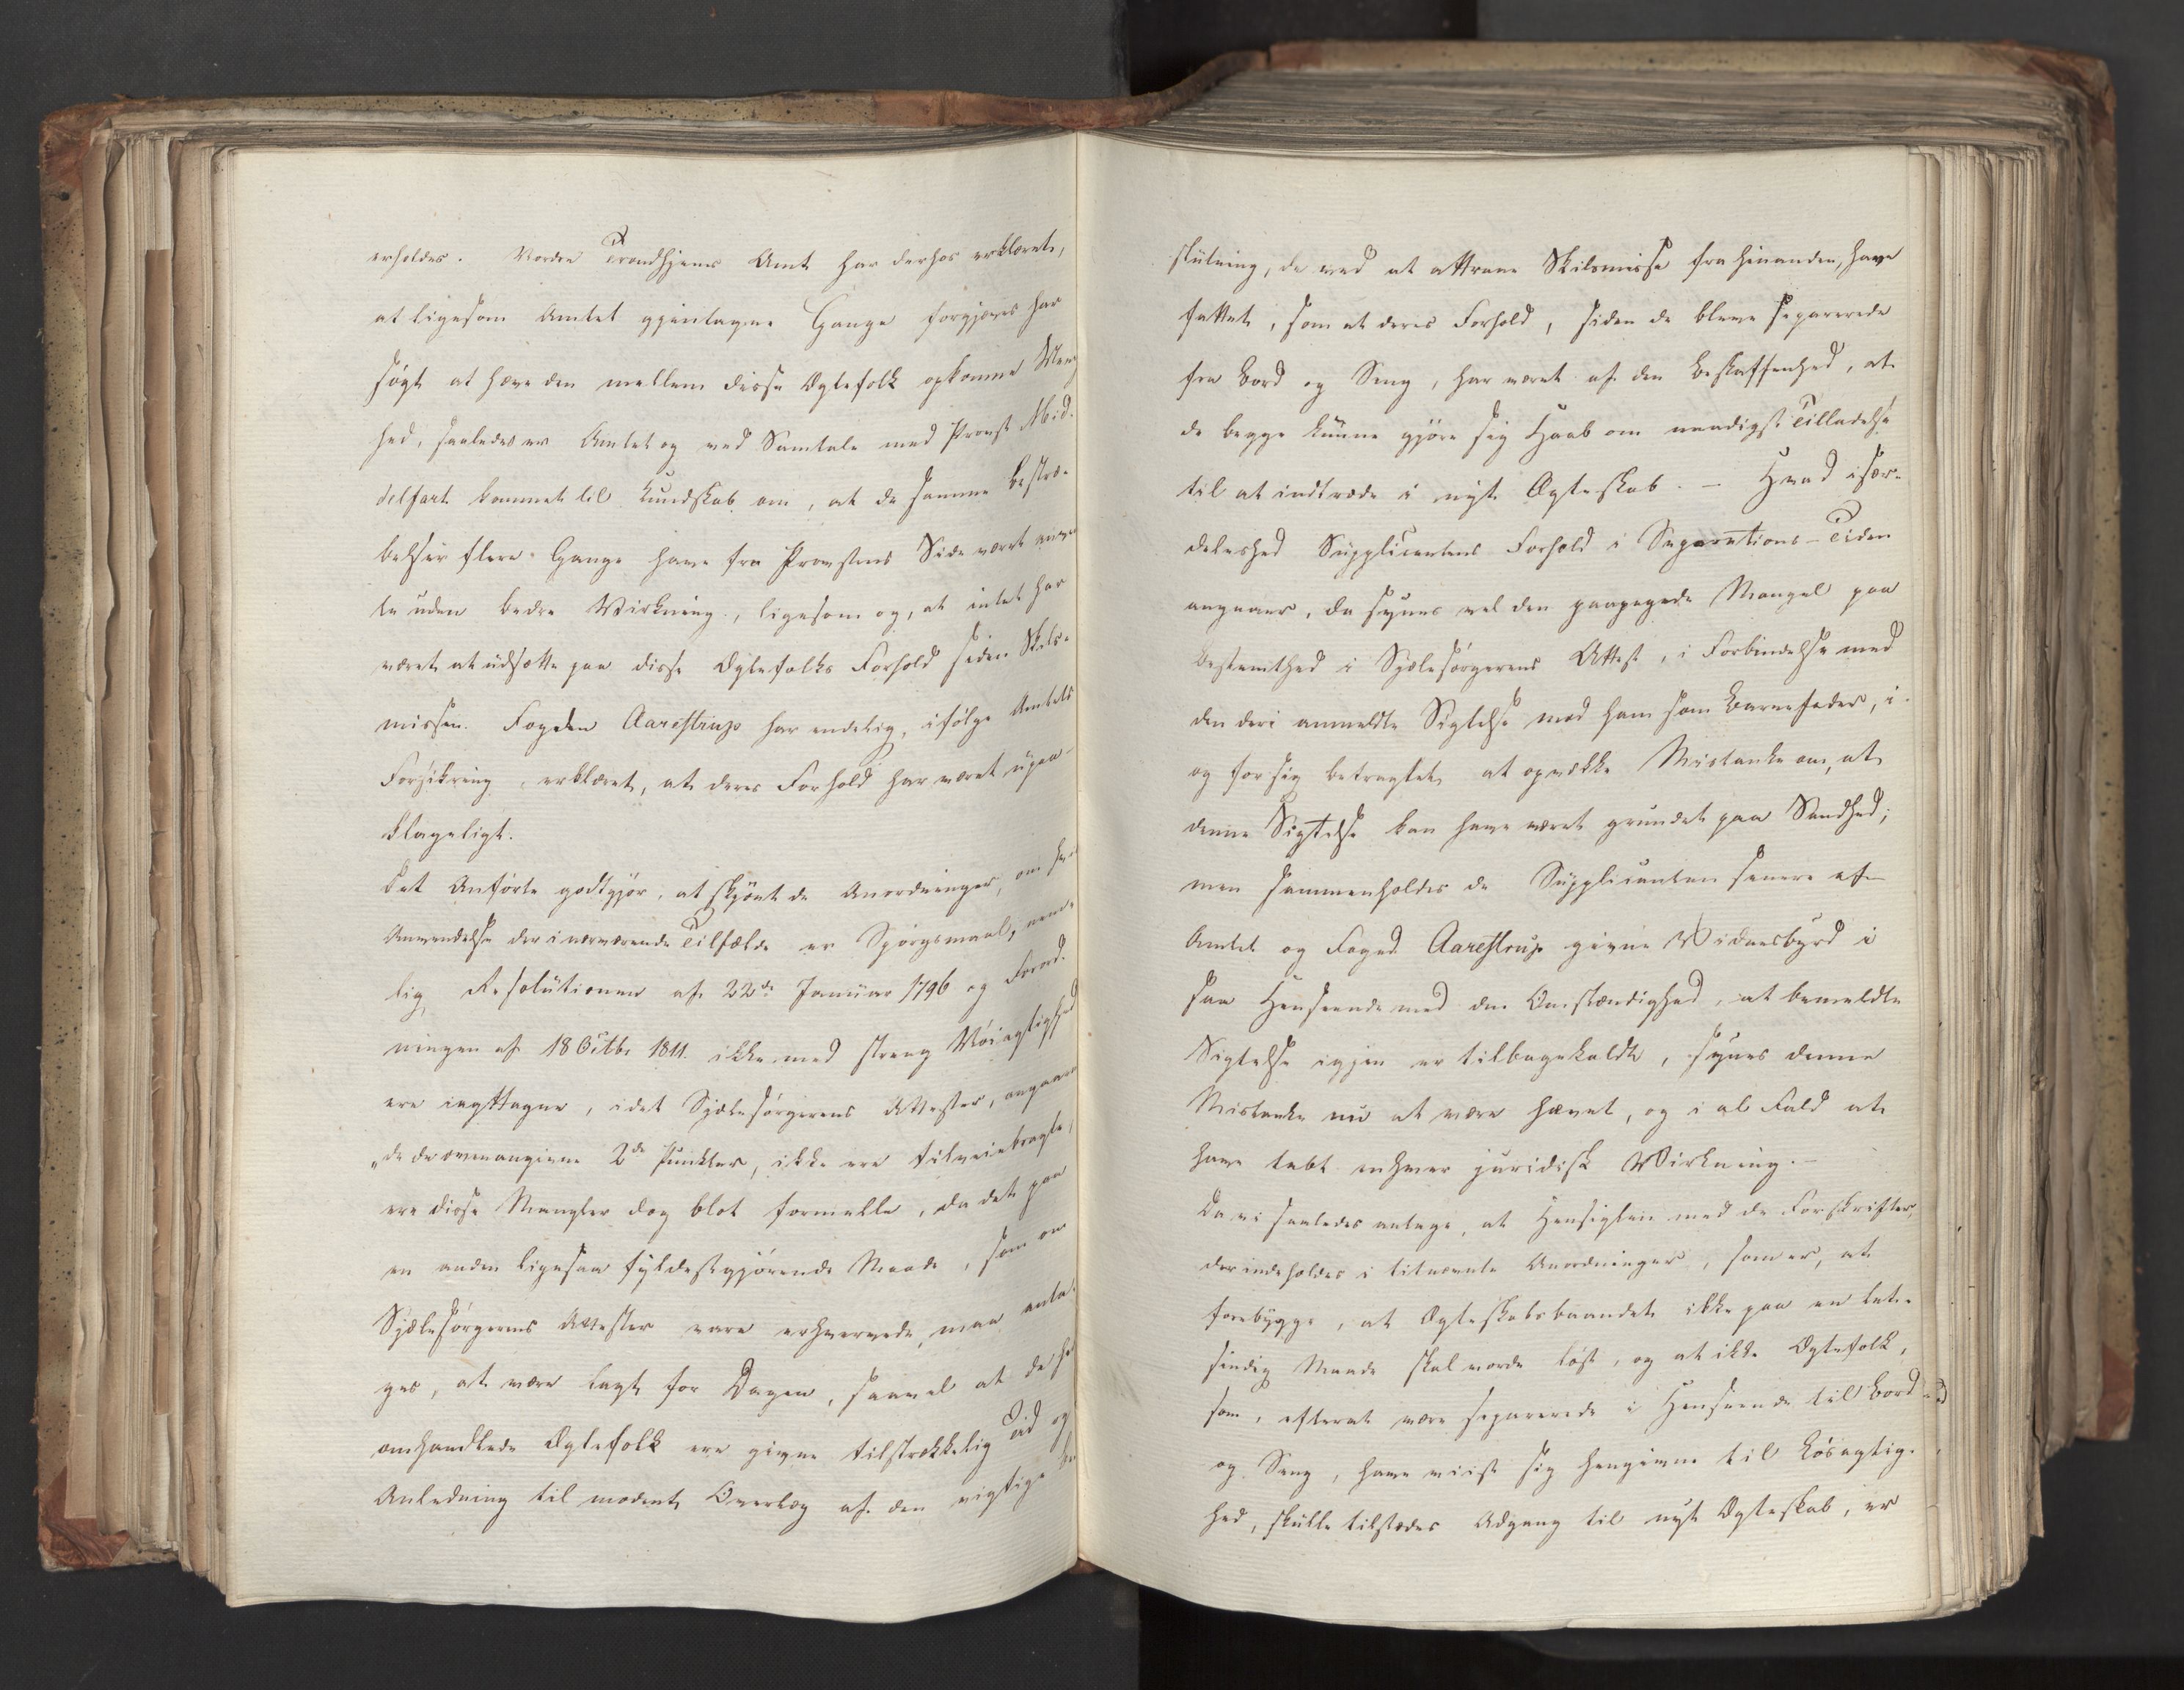 erholdes. Nordre Trondhjems Amt har derhos erklæret,
at ligesom Amtet gjentagne Gange forgjæves har
søgt at hæve den mellem disse Ægtefolk opkomne Ueenig
hed, saaledes er Amtet og ved Samtale med Provst Mid-
delfart kommet til Kundskab om, at de samme Bestræ-
belser flere Gange have fra Provstens Side været anven
te uden bedre Virkning, ligesom og, at intet har
været at udsætte paa disse Ægtefolks Forhold siden Skils-
missen. Fogden Aarestrup har endelig, ifølge Amtets
Forsikring, erklæret, at deres Forhold har været upaa-
klageligt.
Det Anførte godtgjør, at skjønt de Anordninger, om hvis
Anvendelse der i nærværende Tilfælde er Spørgsmaal, nem-
lig Resolutionen af 22de Januar 1796 og Forord-
ningen af 18 Octbr 1811. ikke med streng Nøiagtighed
ere iagttagne, idet Sjælesørgerens Attester, angaaen
de de ovenangivne 2de Punkter, ikke ere tilveiebragte,
ere disse Mangler dog blot formelle, da det paa
en anden ligesaa fyldestgjørende Maade, som om
Sjælesørgerens Attester vare erhvervede, maa anta-
ges, at være lagt for Dagen, saavel at de her
omhandlede Ægtefolk ere givne tilstrækkelig Tid og
Anledning til modent Overlæg af den vigtige Be
slutning, de ved at attraae Skilsmisse fra hinanden, have
fattet, som at deres Forhold, siden de bleve separerede
fra Bord og Seng, har været af den Beskaffenhed, at
de begge kunne gjøre sig Haab om naadigst Tilladelse
til at indtræde i nyt Ægteskab. – Hvad især-
deleshed Supplicantens Forhold i Separations-Tiden
angaaer, da synes vel den paapegede Mangel paa
Bestemthed i Sjælesørgerens Attest, i Forbindelse med
den deri anmeldte Sigtelse mod ham som Barnefader, i
og for sig betragtet, at opvække Mistanke om, at
denne Sigtelse kan have været grundet paa Sandhed;
men sammenholdes de Supplicanten senere af
Amtet og Foged Aarestrup givne Vidnesbyrd i
saa Henseende med den Omstændighed, at bemeldte
Sigtelse igjen er tilbagekaldt, synes denne
Mistanke nu at være hævet, og i al Fald at
have tabt enhver juridisk Virkning. –
Da vi saaledes antage, at Hensigten med de Forskrifter,
der indeholdes i titnævnte Anordninger, som er, at
forebygge, at Ægteskabsbaandet ikke paa en let-
sindig Maade skal vorde løst, og at ikke Ægtefolk,
som, efterat være separerede i Henseende til Bord
og Seng, have viist sig hengivne til Løsagtig-
hed, skulle tilstedes Adgang til nyt Ægteskab, er